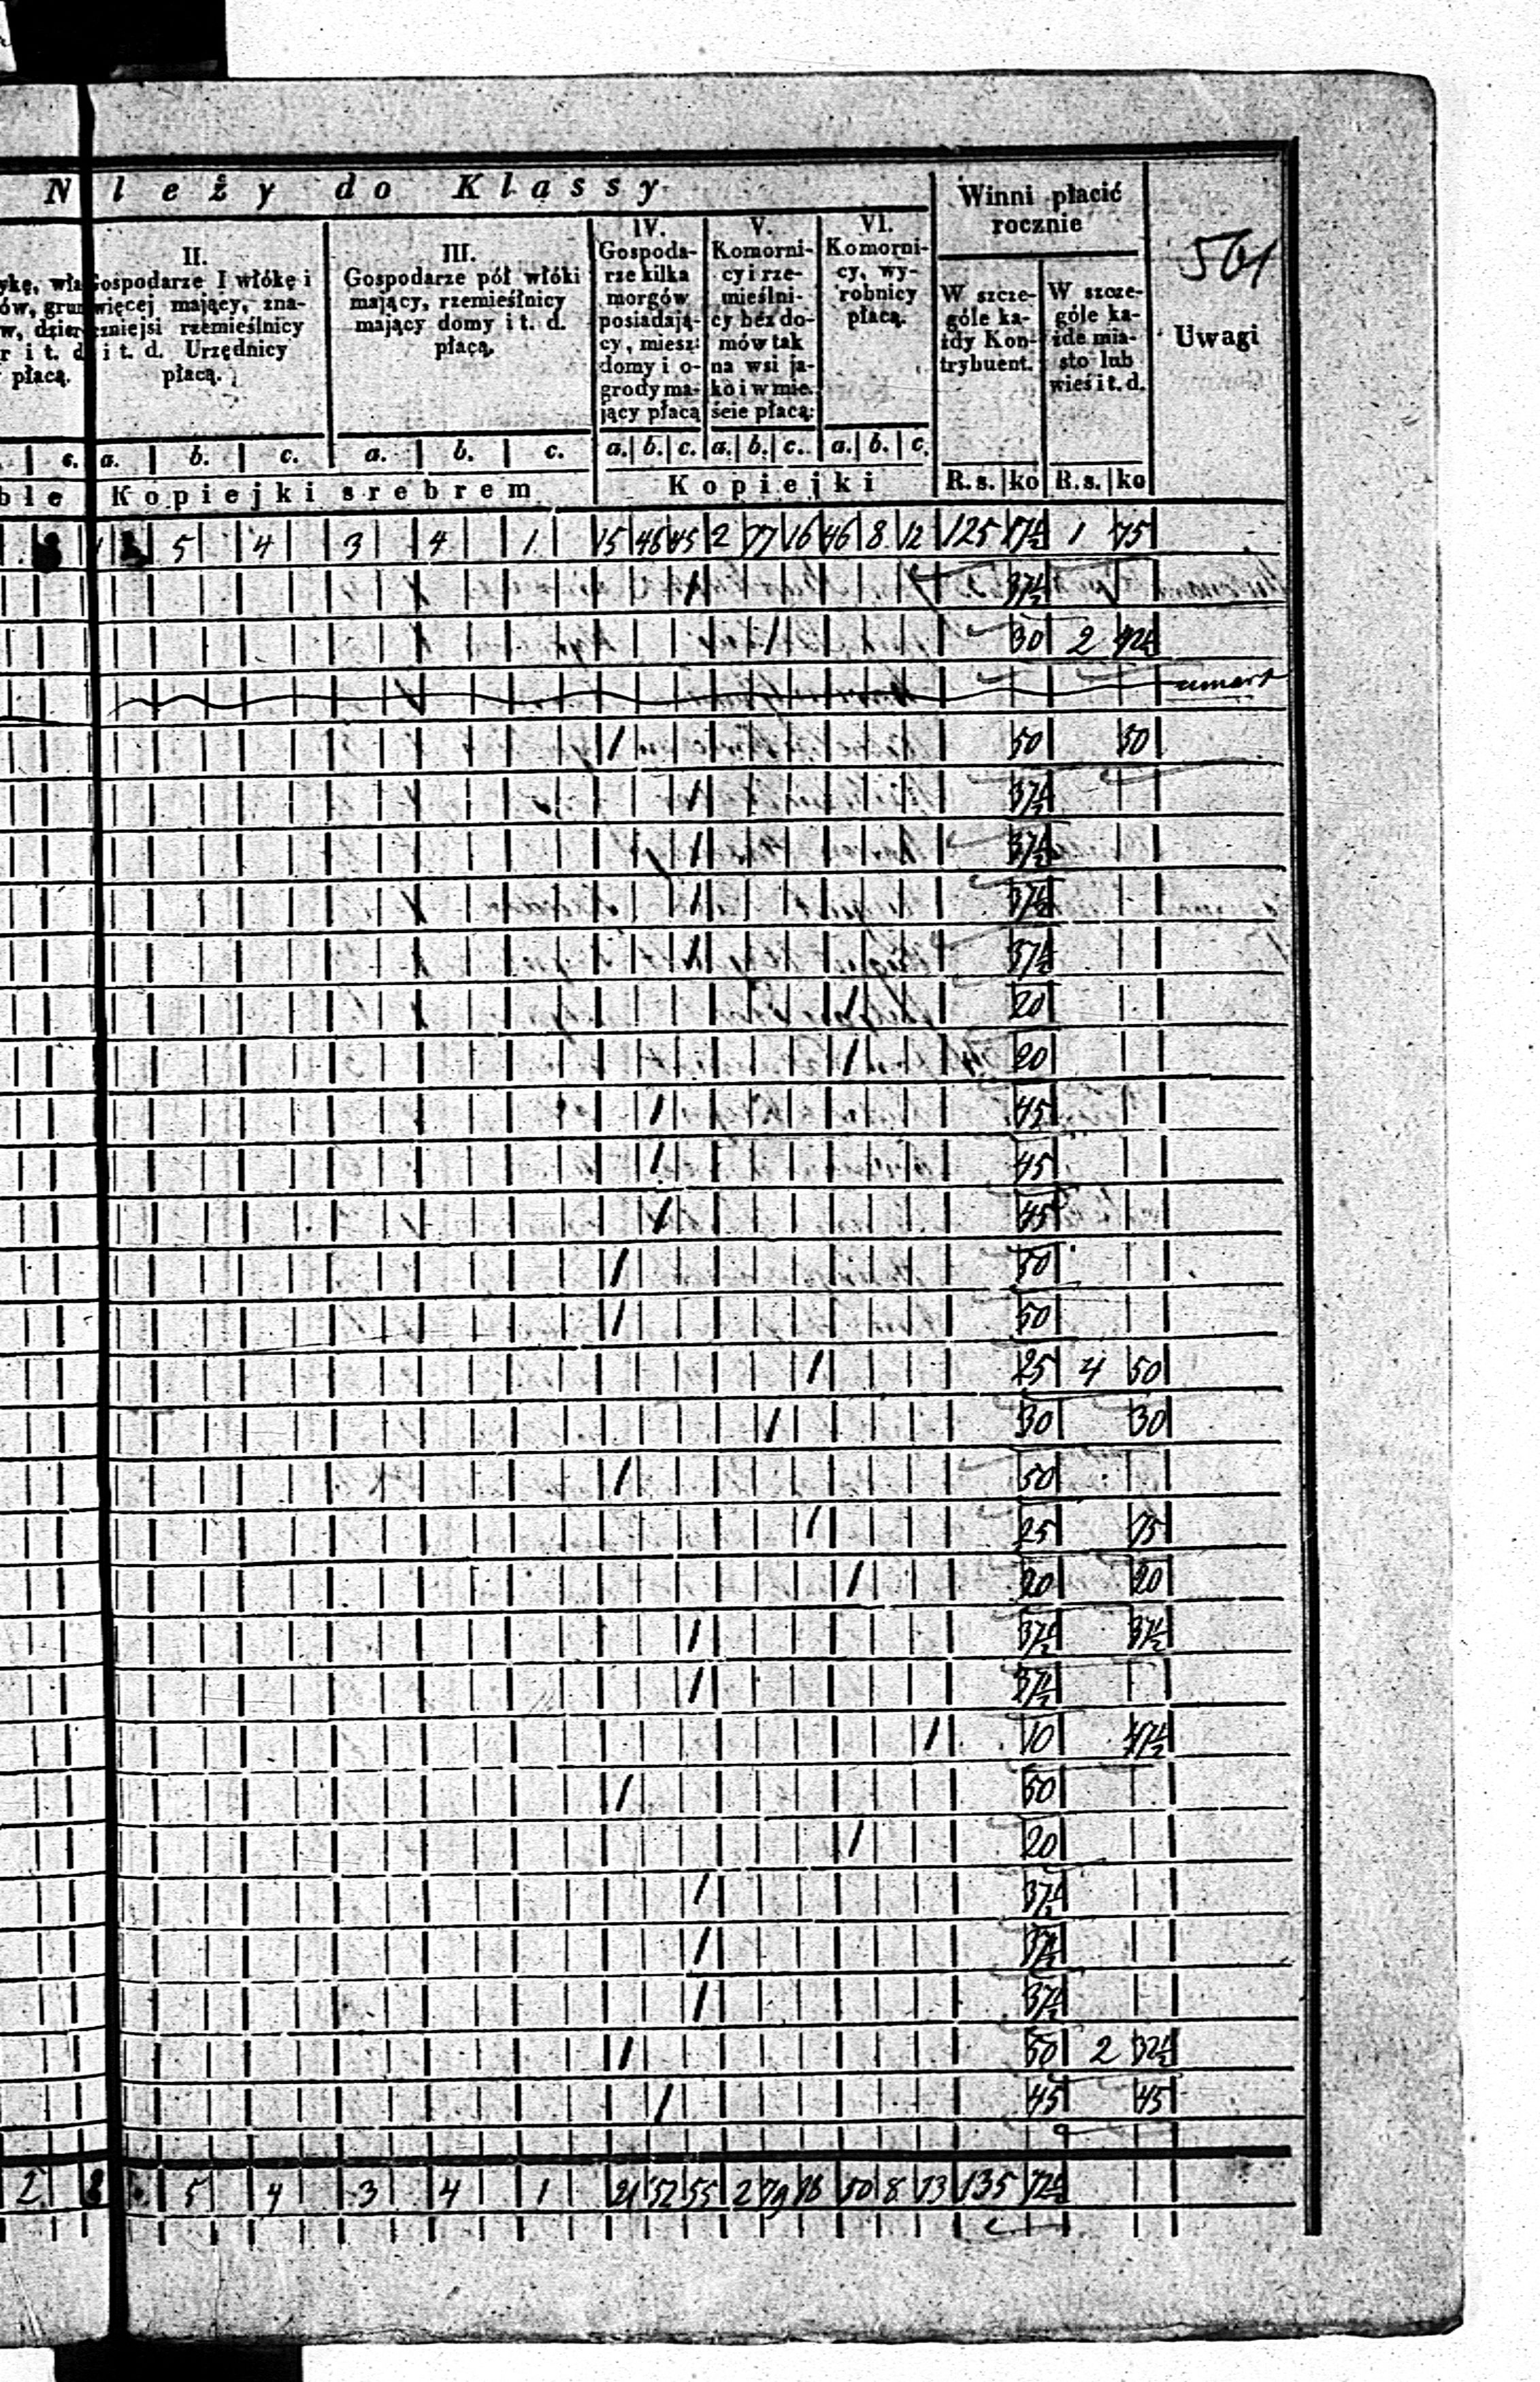 N leży do Klassy
Winni płacić
rocznie
561
Uwagi
ykę, wła
ów, grun
w, dzier
r i t. d
płacą.
II.
Gospodarze I włókę i
więcej mający, zna-
czniejsi rzemieślnicy
i t. d. Urzędnicy
płacą.
III.
Gospodarze pół włóki
mający, rzemieślnicy
mający domy i t. d.
płacą.
IV.
Gospoda-
rze kilka
morgów
posiadają-
cy, miesz:
domy i o-
grody ma-
jący płacą
V.
Komorni-
cy i rze-
mieślni-
cy bez do-
mów tak
na wsi ja-
ko i w mie-
ście płacą:
VI.
Komorni-
cy, wy-
robnicy
płacą.
W szcze-
góle ka-
żdy Kon-
trybuent.
W szcze-
góle ka-
żde mia-
sto lub
wieś i t. d.
c. a. b. c. a. b. c. a. b. c. a. b. c. a. b. c.
ble Kopiejki srebrem Kopiejki R.s. ko R.s. ko
5 4 3 4 1 15 46 45 2 77 16 46 8 12 125 17½ 1 75
1 37½
1 30 2 42½
umarł
1 50 50
1 37½
1 37½
1 37½
1 37½
1 20
1 20
1 45
1 45
1 45
1 50
1 50
1 25 4 50
1 30 30
1 50
1 25 75
1 20 20
1 37½ 37½
1 37½
1 10 47½
1 50
1 20
1 37½
1 37½
1 37½
1 50 2 32½
1 45 45
2 5 4 3 4 1 21 52 55 2 79 18 50 8 13 135 72½